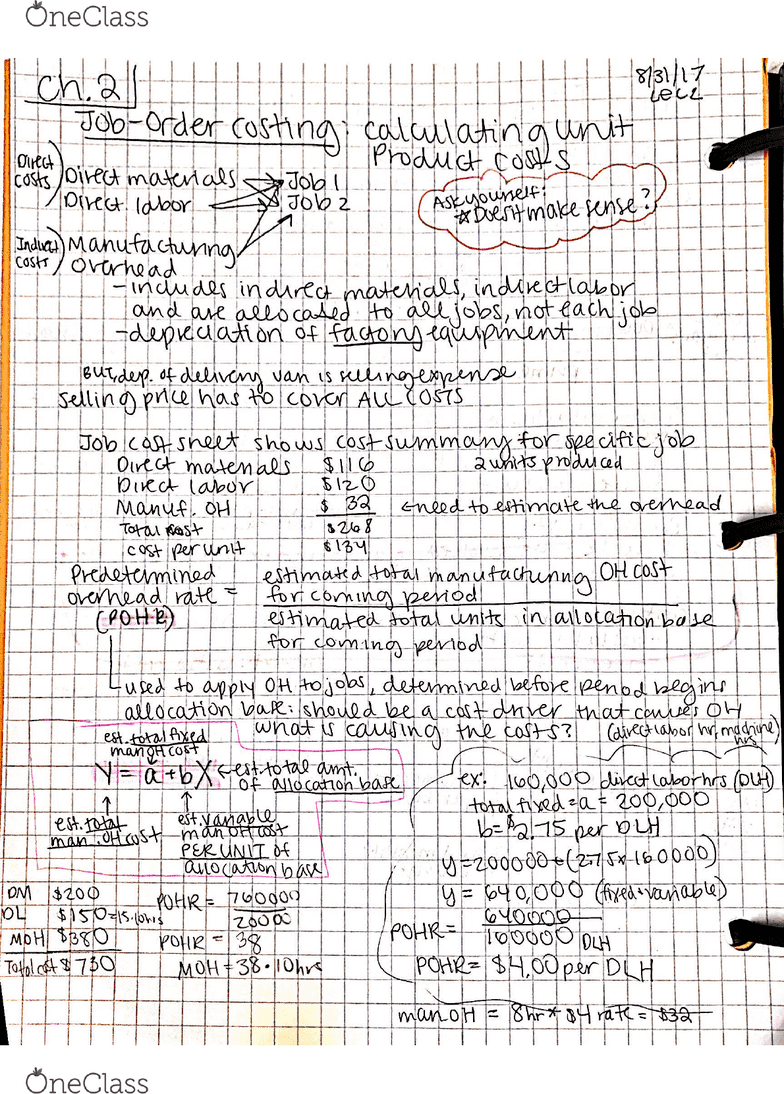 OneClass
8/31/17
Lec 2
Ch. 2
Job-Order costing: calculating unit
Product costs
Direct costs) Direct materials → Job 1
Direct labor → Job 2
Ask yourself:
*Does it make sense?
Indirect costs) Manufacturing
overhead
-includes indirect materials, indirect labor
and are allocated to all jobs, not each job
-depreciation of factory equipment
BUT, dep. of delivery van is selling expense
selling price has to cover ALL COSTS
Job cost sheet shows cost summary for specific job
Direct materials $116 2 units produced
Direct labor $120
Manuf. OH $ 32 ←need to estimate the overhead
Total cost $268
cost per unit $134
Predetermined
overhead rate =
(POHR)
estimated total manufacturing OH cost
for coming period
estimated total units in allocation base
for coming period
used to apply OH to jobs, determined before period begins
allocation base: should be a cost driver that causes OH
what is causing the costs? (direct labor hr, machine hrs)
est. total fixed
man OH cost
Y = a + bX ←est. total amt.
of allocation base
est. total
man. OH cost
est. variable
man OH cost
PER UNIT of
allocation base
ex: 160,000 direct labor hrs (DLH)
total fixed = a = 200,000
b = $2.75 per DLH
y=200000+(2.75x160000)
y = 640,000 (fixed+variable)
POHR = 640000
160000 DLH
POHR= $4.00 per DLH
man OH = 8hr * $4 rate = $32
DM $200
DL $150=15.10hrs
MOH $380
Total cost $730
POHR = 760000
20000
POHR = 38
MOH = 38·10hrs
OneClass